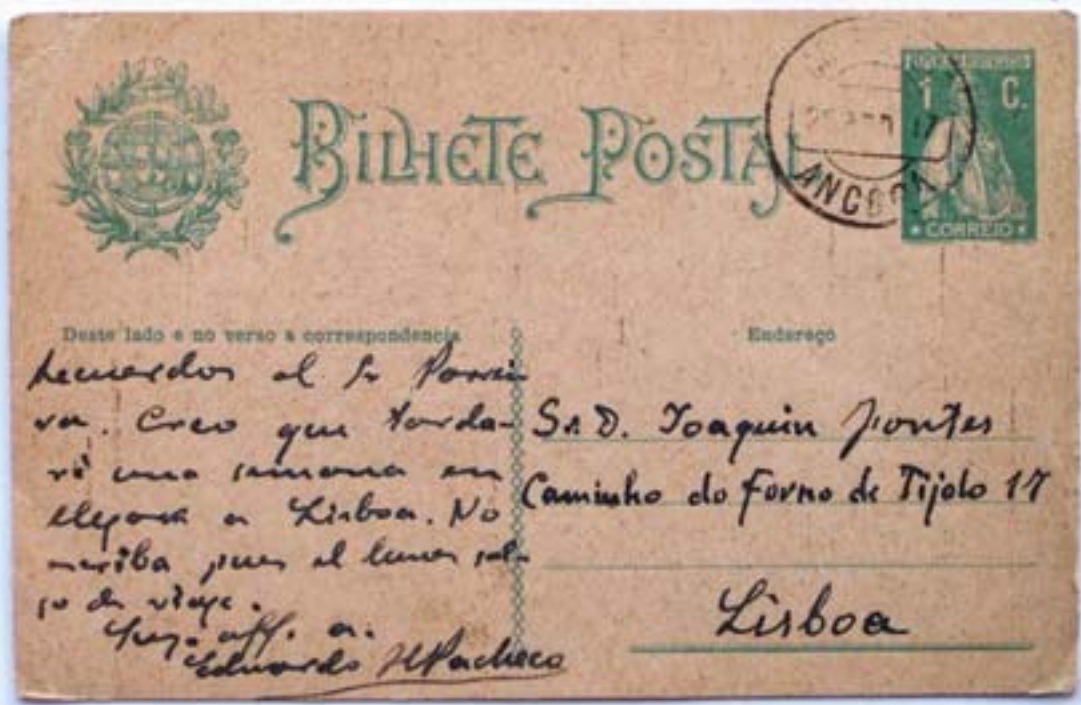 BILHETE POSTAL
1 C.
CORREIO
17
ANCORA
Deste lado e no verso a correspondencia
Recuerdos al Sr Parrei
ra. Creo que tarda-
ré una semana en
llegar a Lisboa. No
escriba pues el lunes sal-
go de viaje.
Suyo aff. a.
Eduardo HPacheco
Endereço
Sr. D. Joaquin Fontes
Caminho do Forno de Tijolo 17
Lisboa